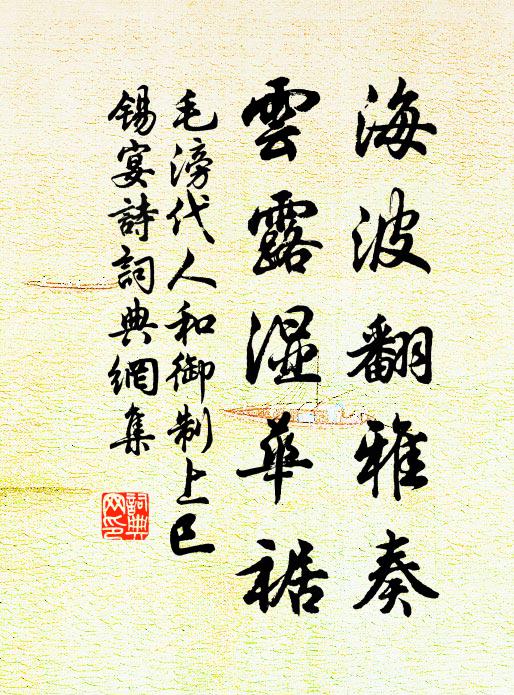 海波翻雅奏
雲露湿華裾
毛滂代人和御制上巳
錫宴詩詞典網集
詞典
网印